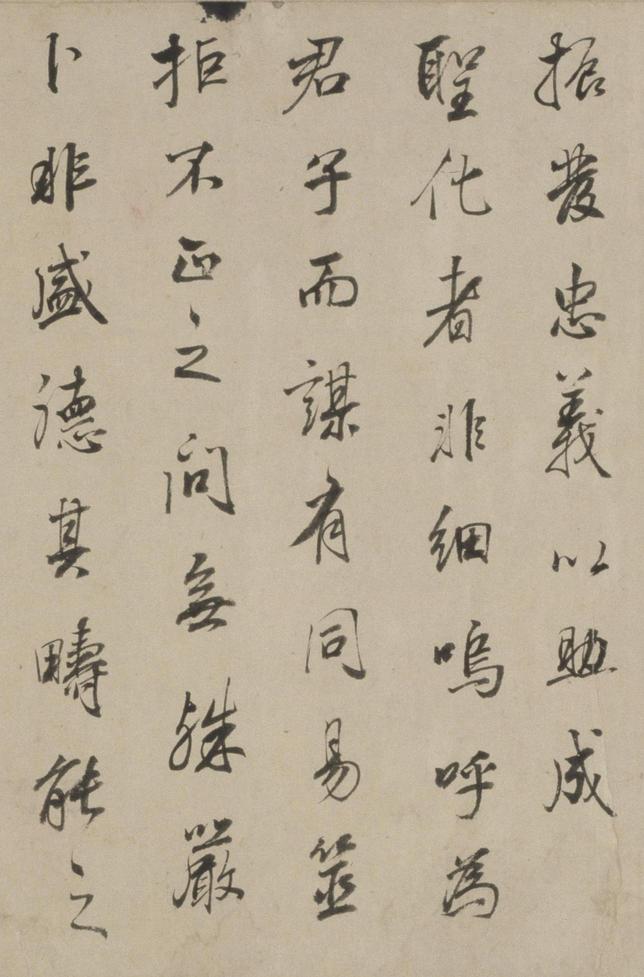 振發忠義以助成
聖化者非細嗚呼為
君子而謀有同易筮
拒不正之問無殊嚴
卜非盛德其疇能之